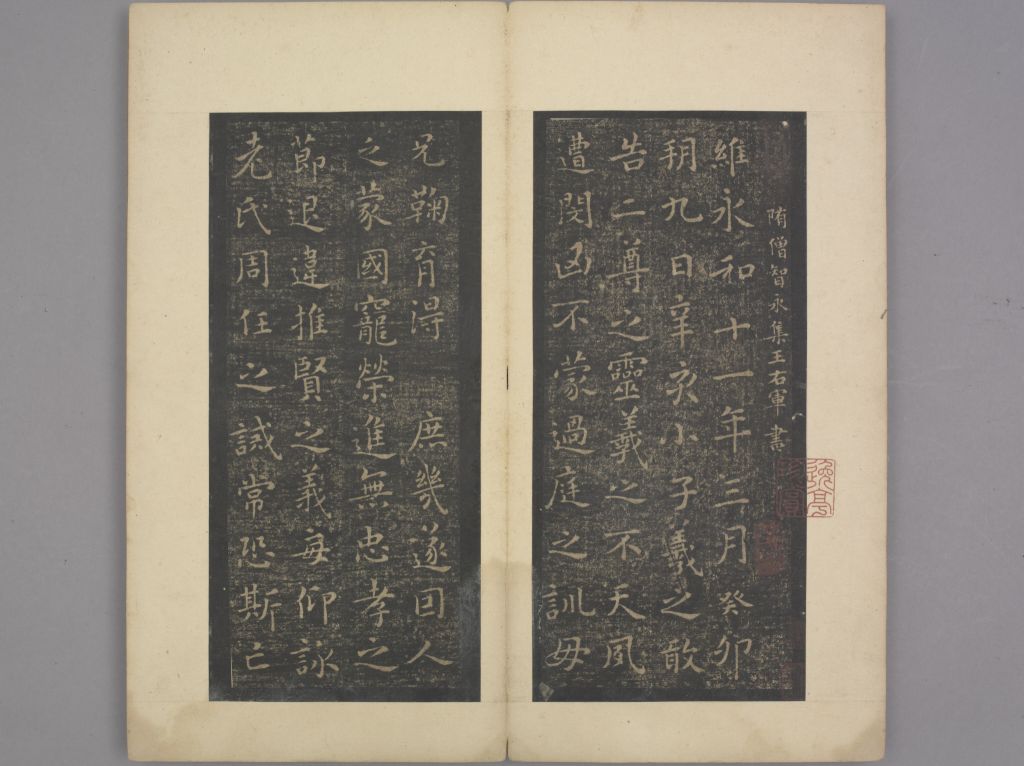 隋僧智永集王右軍書
維永和十一年三月癸卯
朔九日辛亥小子羲之敢
告二尊之靈羲之不天夙
遭閔凶不蒙過庭之訓母
兄鞠育得 庶幾遂因人
之蒙國寵榮進無忠孝之
節退違推賢之義每仰詠
老氏周任之誡常恐斯亡